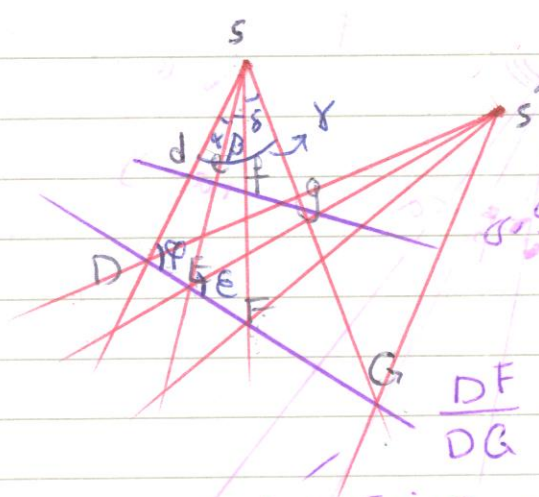 S
S'
α β δ γ
d e f g
D φ E ε F G
DF
DG